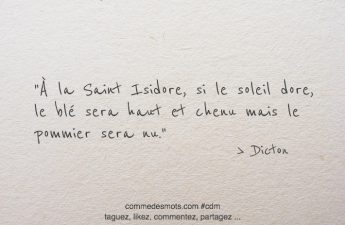 "À la Saint Isidore, si le soleil dore,
le blé sera haut et chenu mais le
pommier sera nu."
> Dicton
commedesmots.com #cdm
taguez, likez, commentez, partagez ...